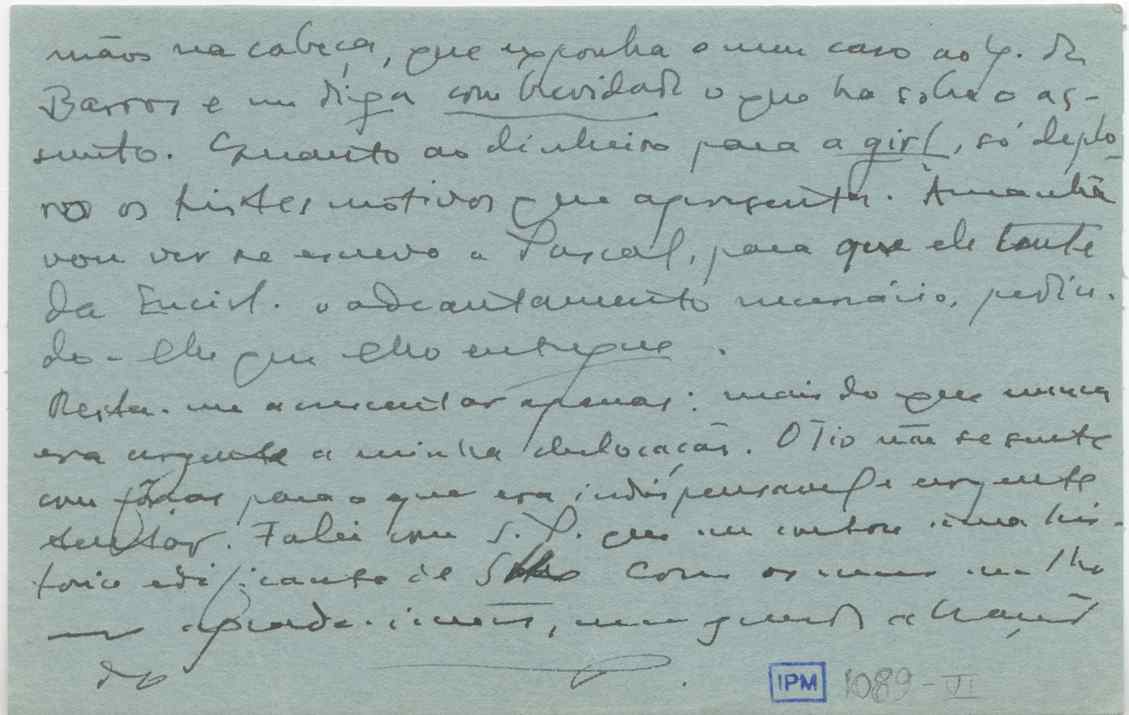 mãos na cabeça, que exponha o meu caso ao Q. de
Barros e me diga com brevidade o que ha sobre o as-
sunto. Quanto ao dinheiro para a girl, só deplo
ro os tristes motivos que apresenta. Amanhã
vou ver se escrevo a Pascal, para que ele tente
da Encicl. o adeantamento necessário, pedin-
do-lhe que lho entregue.
Resta-me acrescentar apenas: mais do que nunca
era urgente a minha deslocação. O Tio não se sente
com fôrças para o que era indispensavel e urgente
tentar. Falei com S. P. que me contou uma his-
toria edificante de com os meus melho
res agradecimentos, um grande abraço
do
IPM 1089-VI